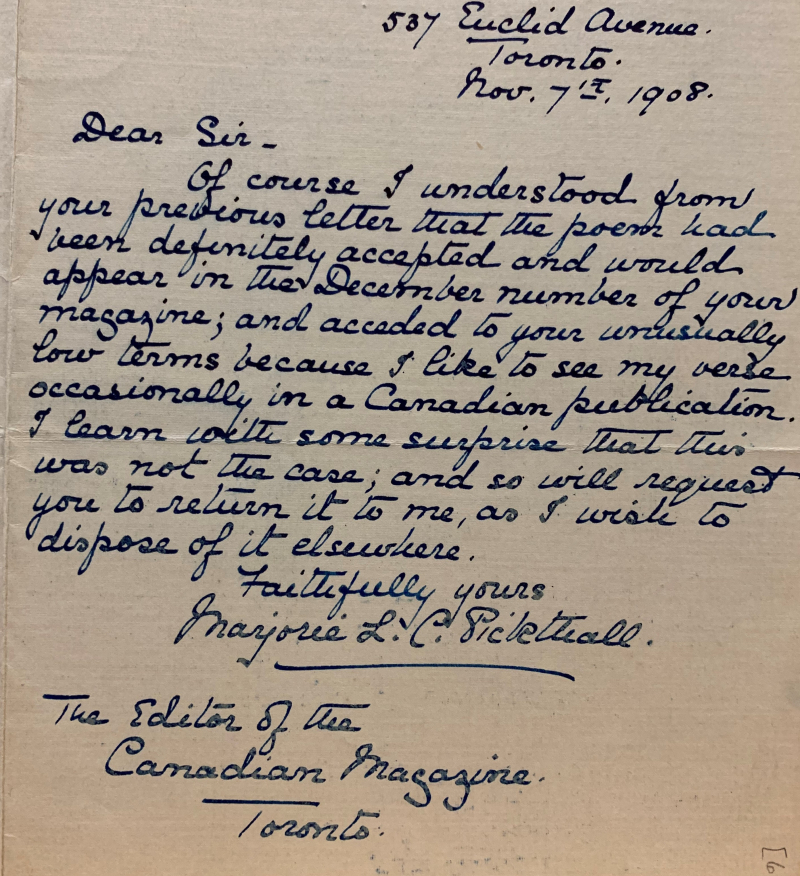 537 Euclid Avenue.
Toronto.
Nov. 7th, 1908.
Dear Sir -
Of course I understood from
your previous letter that the poem had
been definitely accepted and would
appear in the December number of your
magazine; and acceded to your unusually
low terms because I like to see my verse
occasionally in a Canadian publication.
I learn with some surprise that this
was not the case; and so will request
you to return it to me, as I wish to
dispose of it elsewhere.
Faithfully yours
Marjorie L. C. Pickthall.
The Editor of the
Canadian Magazine.
Toronto.
[6